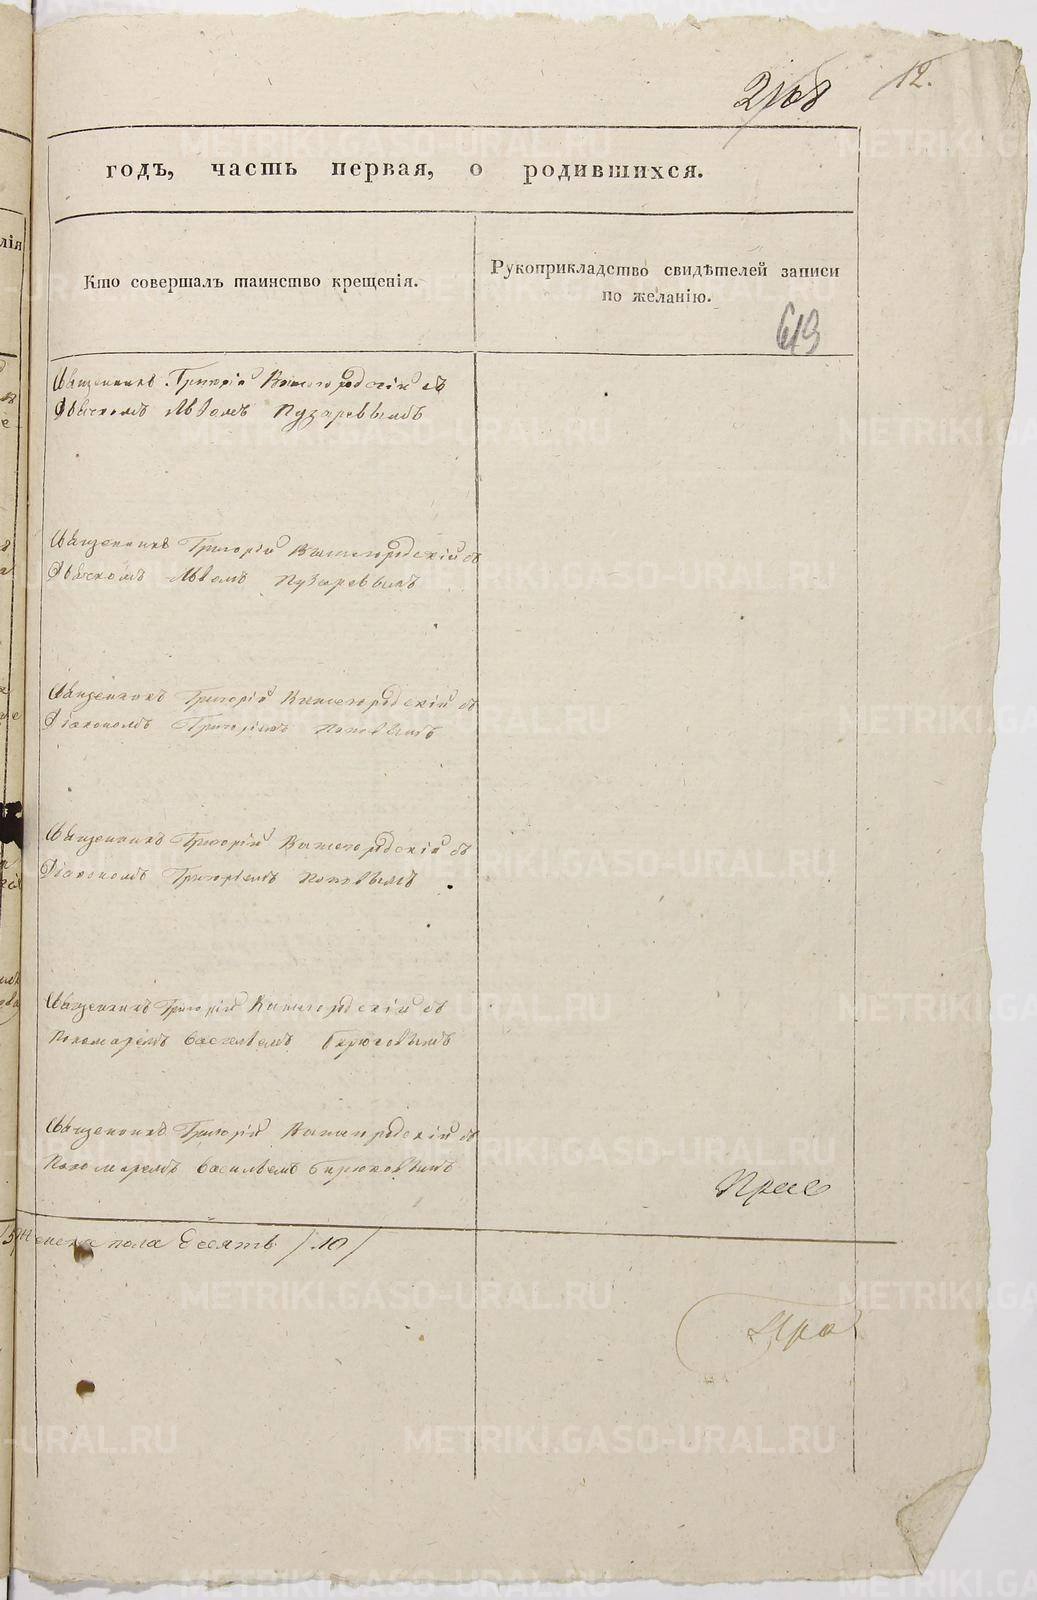 12.
годъ, часть первая, о родившихся.
Кто совершалъ таинство крещенія.
Рукоприкладство свидѣтелей записи
по желанію.
619
Священникъ Григорій Вышегородскій съ
Діакономъ Львомъ Пузыревымъ
Священникъ Григорій Вышегородскій съ
Діакономъ Львомъ Пузыревымъ
Священникъ Григорій Вышегородскій съ
Діакономъ Григоріемъ Поповымъ
Священникъ Григорій Вышегородскій съ
Діакономъ Григоріемъ Поповымъ
Священникъ Григорій Вышегородскій съ
Пономаремъ Василіемъ Бирюковымъ
Священникъ Григорій Вышегородскій съ
Пономаремъ Василіемъ Бирюковымъ
женска пола десять /10/
METRIKI.GASO-URAL.RU